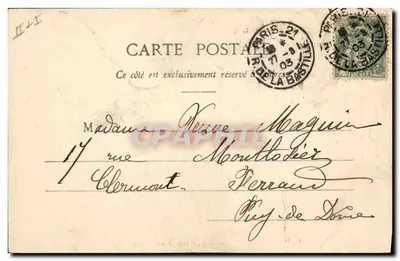 II + I
CARTE POSTALE
Ce côté est exclusivement réservé
PARIS 21
R. DE LA BASTILLE
27 -9
03
PARIS 21
R. DE LA BASTILLE
03
CartePostale
Madame Veuve Maguin
17 rue Montlosier
Clermont Ferrand
Puy-de Dôme